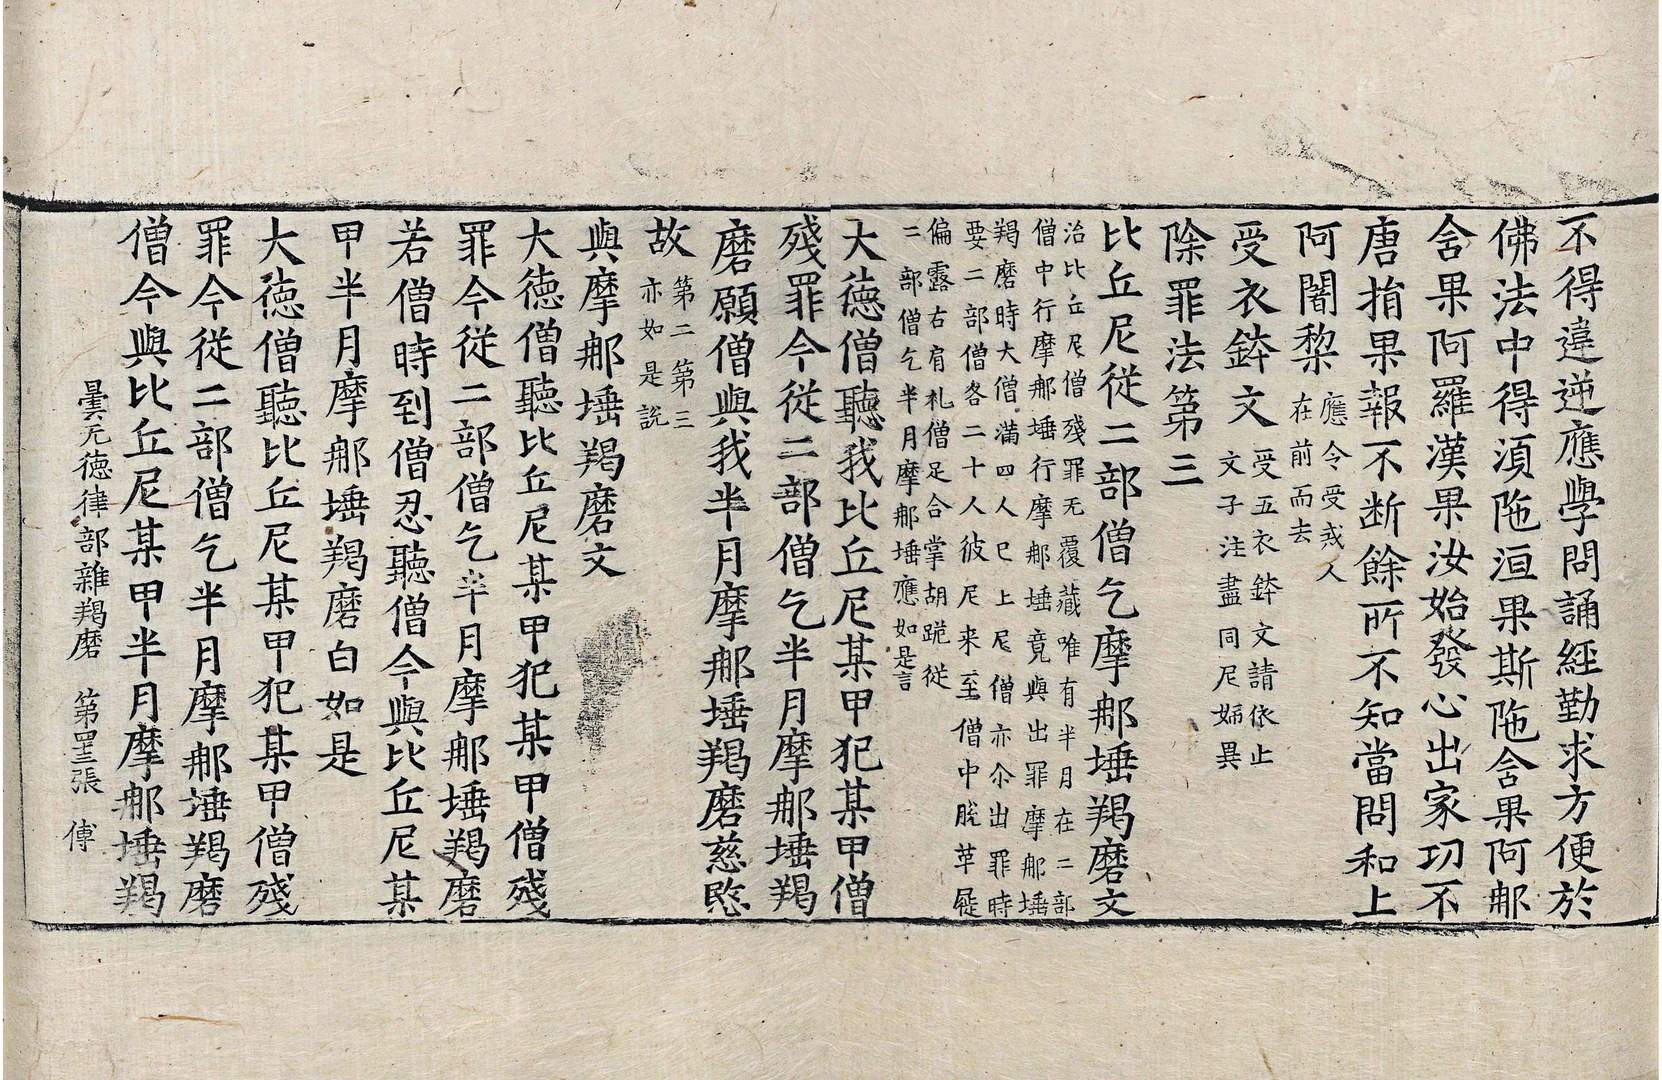 不得違逆應學問誦經勤求方便於
佛法中得湏陁洹果斯陁含果阿那
含果阿羅漢果汝始發心出家功不
唐捐果報不斷餘所不知當問和上
阿闍黎應令受戒人
在前而去
受衣鉢文受五衣鉢文請依止
文子注盡同尼婦異
除罪法第三
比丘尼從二部僧乞摩那埵羯磨文
治比丘尼僧殘罪无覆藏唯有半月在二部
僧中行摩那埵行摩那埵竟與出罪摩那埵
羯磨時大僧滿四人已上尼僧亦尒出罪時
要二部僧各二十人彼尼来至僧中脫革屣
偏露右肩礼僧足合掌胡跪從
二部僧乞半月摩那埵應如是言
大德僧聽我比丘尼某甲犯某甲僧
殘罪今從二部僧乞半月摩那埵羯
磨願僧與我半月摩那埵羯磨慈愍
故第二第三
亦如是說
與摩那埵羯磨文
大德僧聽比丘尼某甲犯某甲僧殘
罪今從二部僧乞半月摩那埵羯磨
若僧時到僧忍聽僧今與比丘尼某
甲半月摩那埵羯磨白如是
大德僧聽比丘尼某甲犯某甲僧殘
罪今從二部僧乞半月摩那埵羯磨
僧今與比丘尼某甲半月摩那埵羯
曇无德律部雜羯磨 第四三張 傅